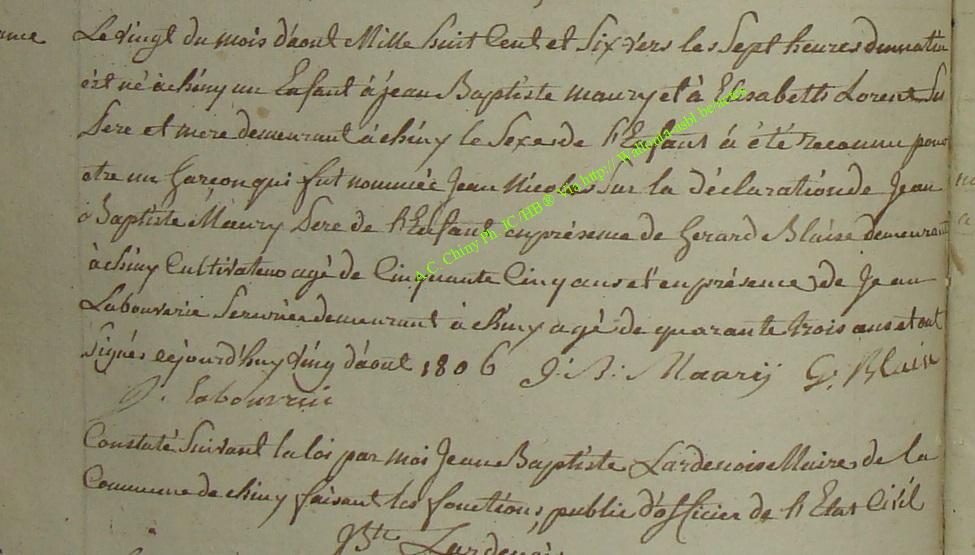 Le vingt du mois d'aout Mille huit Cent et Six vers les Sept heures du matin
est né à chiny un Enfant à jean Baptiste maury et à Elisabeth Lorent Su
Pere et mere demeurant à chiny le Sexe de l'Enfant à été reconnu pour
etre un Garçon qui fut nommée Jean Nicolas Sur la déclaration de Jean
Baptiste Maury Pere de l'Enfant en présense de Gerard Blaise demeurant
à chiny Cultivateur agé de Cinquante Cinq ans et en présence de Jean
Labouverie demeurant à chiny agé de quarante trois ans et ont
Signés cejourd'huy ving d'aout 1806 J. B. Maurij G. Blaise
J. Labouverie
Constaté Suivant la loi par moi Jean Baptiste Lardenois Maire de la
Commune de chiny faisant les fonctions public d'officier de l'Etat Civil
Lardenois
A.C. Chiny Ph. JC/HB® Via http:// Wallonia-asbl.be/actes